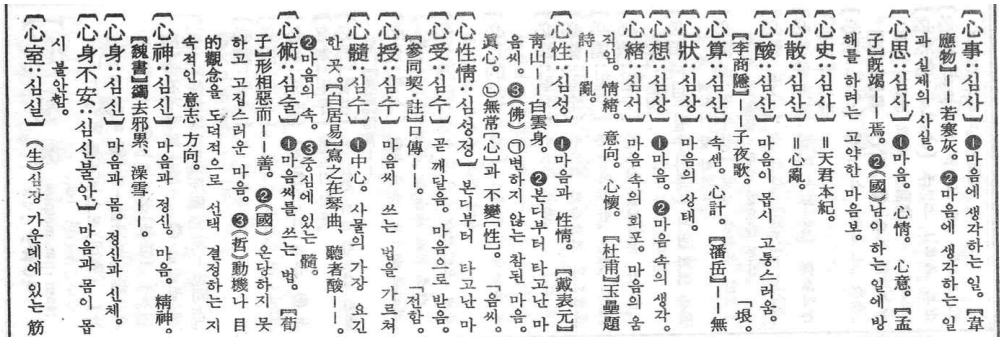 〔心事:심사〕 ❶마음에 생각하는 일. 【韋
應物】——若寒灰。❷마음에 생각하는 일
과 실제의 사실.
〔心思:심사〕 ❶마음. 心情. 心意. 【孟
子】旣竭——焉。❷(國)남이 하는 일에 방
해를 하려는 고약한 마음보.
〔心史:심사〕 =天君本紀.
〔心散:심산〕 =心亂.
〔心酸:심산〕 마음이 몹시 고통스러움.
【李商隱】——子夜歌。 「垠。
〔心算:심산〕 속셈. 心計. 【潘岳】——無
〔心狀:심상〕 마음의 상태.
〔心想:심상〕 ❶마음. ❷마음 속의 생각.
〔心緖:심서〕 마음 속의 회포. 마음의 움
직임. 情緖. 意向. 心懷. 【杜甫】玉壘題
詩——亂。
〔心性:심성〕 ❶마음과 性情. 【戴表元】
靑山——白雲身。❷본디부터 타고난 마
음씨. ❸(佛) ㉠변하지 않는 참된 마음.
眞心. ㉡無常【心】과 不變【性】. 「음씨.
〔心性情:심성정〕 본디부터 타고난 마
〔心受:심수〕 곧 깨달음. 마음으로 받음.
【參同契·註】口傳——。 「전함.
〔心授:심수〕 마음씨 쓰는 법을 가르쳐
〔心髓:심수〕 ❶中心. 사물의 가장 요긴
한 곳. 【白居易】寫之在琴曲、聽者酸——。
❷마음의 속. ❸중심에 있는 髓.
〔心術:심술〕 ❶마음씨를 쓰는 법. 【荀
子】形相惡而——善。❷(國) 온당하지 못
하고 고집스러운 마음. ❸(哲)動機나 目
的觀念을 도덕적으로 선택 결정하는 지
속적인 意志 方向.
〔心神:심신〕 마음과 정신. 마음. 精神.
【魏書】蠲去邪累、澡雪——。
〔心身:심신〕 마음과 몸. 정신과 신체.
〔心身不安:심신불안〕 마음과 몸이 몹
시 불안함.
〔心室:심실〕 (生)심장 가운데에 있는 筋